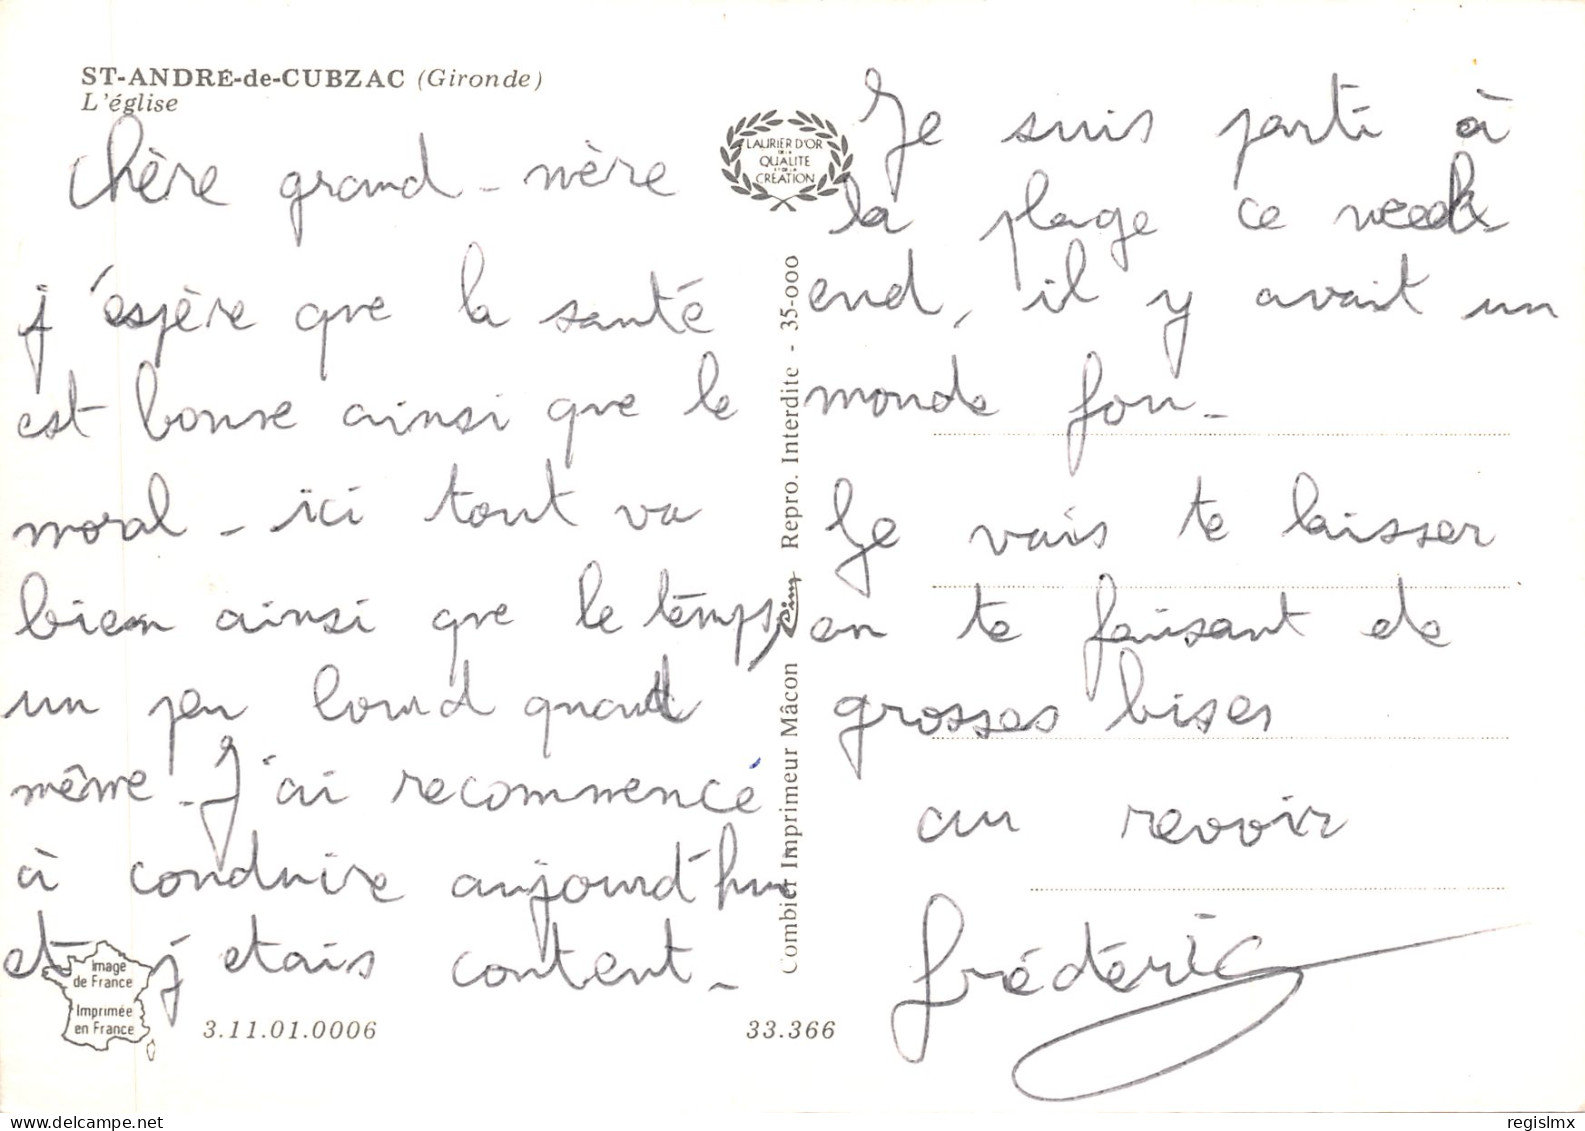 ST-ANDRÉ-de-CUBZAC (Gironde)
L'église
Chère grand-mère
j'espère que la santé
est bonne ainsi que le
moral - ici tout va
bien ainsi que le temps,
un peu lourd quand
même. J'ai recommencé
à conduire aujourd'hui
et j'etais content -
Image
de France
Imprimée
en France
3.11.01.0006
33.366
LAURIER D'OR
DE LA
QUALITE
ET DE LA
CREATION
Combier Imprimeur Mâcon Cim Repro. Interdite - 35-000
Je suis parti à
la plage ce week
end, il y avait un
monde fou -
Je vais te laisser
en te faisant de
grosses bises
au revoir
Frédéric
regislmx